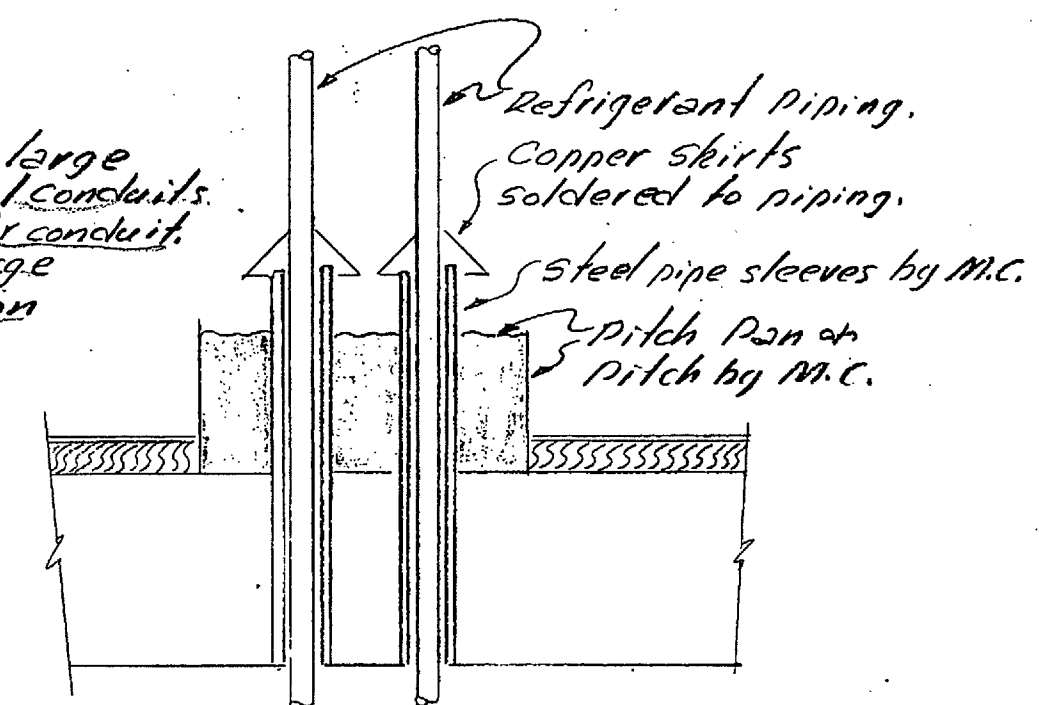 large
conduits.
conduit.
Refrigerant Piping.
Copper skirts
soldered to piping.
Steel pipe sleeves by M.C.
Pitch Pan
Pitch by M.C.